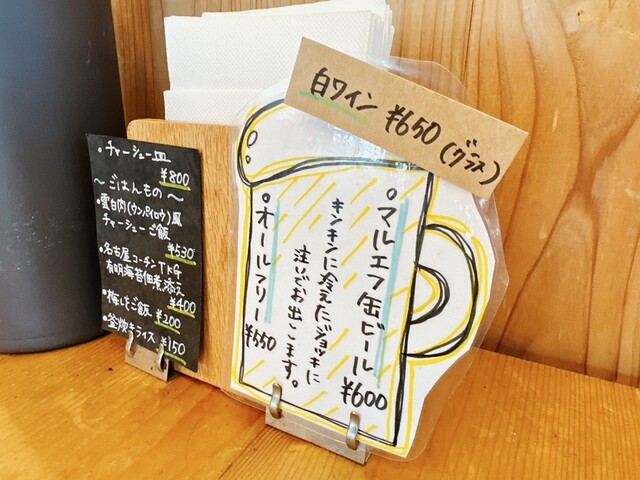 。チャーシュー皿
¥800
〜ごはんもの〜
・雲白肉(ウンパイロウ)風
チャーシューご飯
¥530
・名古屋コーチンTKG
有明海苔佃煮添え
¥400
・梅しそご飯 ¥200
・釜炊きライス ¥150
白ワイン ¥650(グラス)
。マルエフ缶ビール
¥600
キンキンに冷えたジョッキに
注いでお出しします。
。オールフリー
¥550